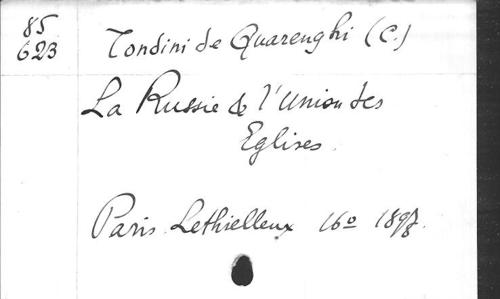 85
623
Tondini de Quarenghi (C.)
La Russie & l'Union des
Eglises.
Paris. Lethielleux 16o 1897.